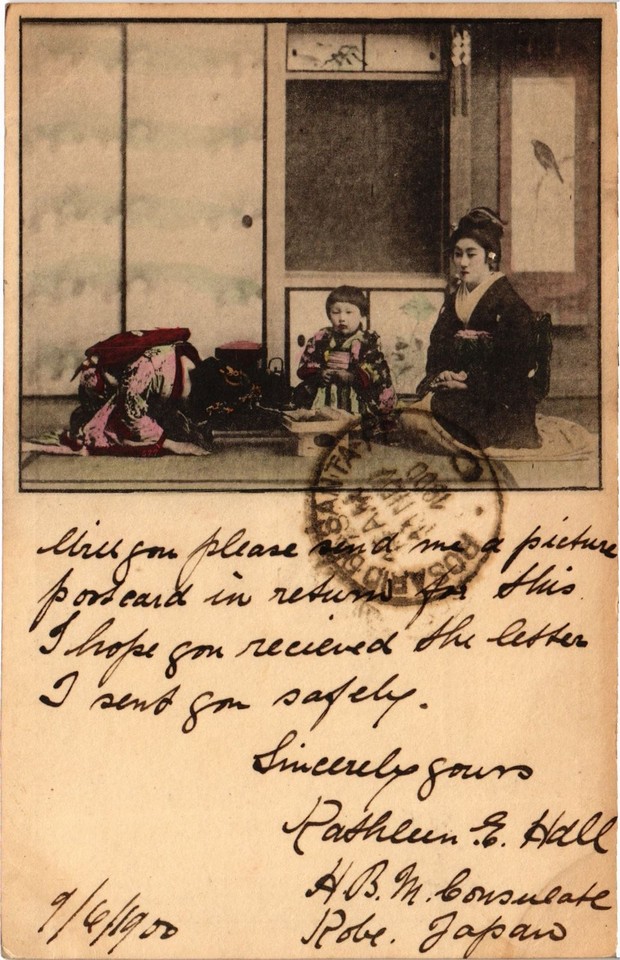 Will you please send me a picture
postcard in return for this.
I hope you recieved the letter
I sent you safely.
Sincerely yours
Kathleen E. Hall
H.B.M. Consulate
Kobe. Japan
9/6/1900
ROSARIO SANTA
1900